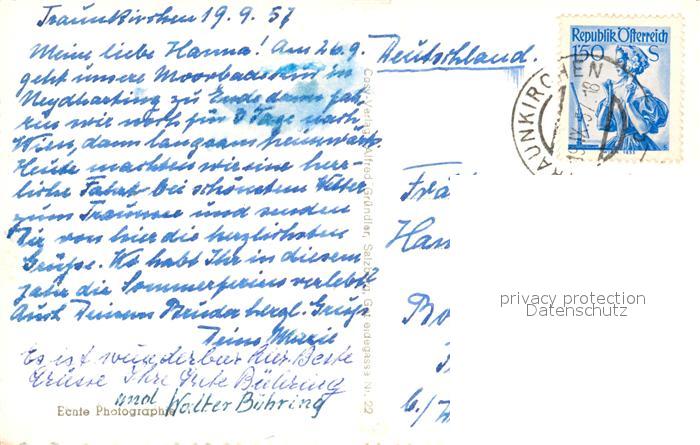 Traunkirchen 19.9.57
Meine liebe Hanna! Am 26.9.
geht unsere Moorbadekur in
Neydharting zu Ende dann fah-
ren wir noch für 3 Tage nach
Wien, dann langsam heimwärts.
Heute machten wir eine herr-
liche Fahrt bei schönstem Wetter
zum Traunsee und senden
Dir von hier die herzlichsten
Grüße. Wo habt Ihr in diesem
Jahr die Sommerferien verlebt?
Auch Deinem Bruder herzl. Grüße
Deine Marie
Es ist wunderbar hier Beste
Grüsse Ihre Grete Bühring
und Walter Bühring
Echte Photographie
Cosy-Verlag Alfred Gründler, Salzburg, Getreidegasse Nr. 22
Deutschland.
Republik Österreich
1'50 S
TRAUNKIRCHEN
Frä
Han
Bo
b./
privacy protection
Datenschutz